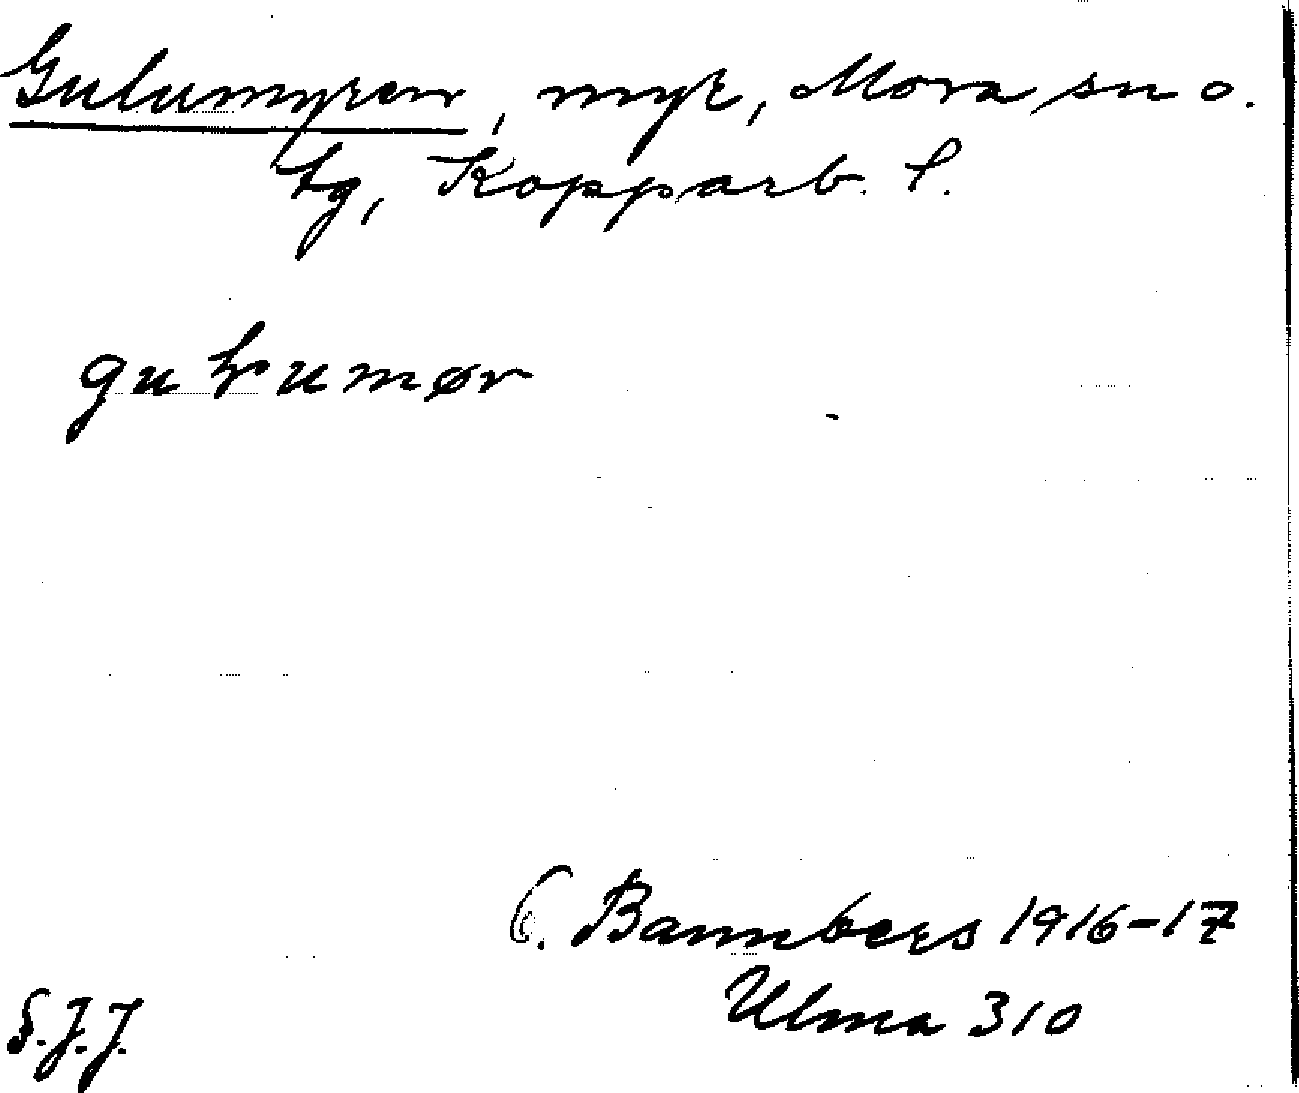 Gulumyren, myr, Mora sn o.
tg, Kopparb. l.
gulumør
O. Bannbers 1916-17
Ulma 310
S.J.J.